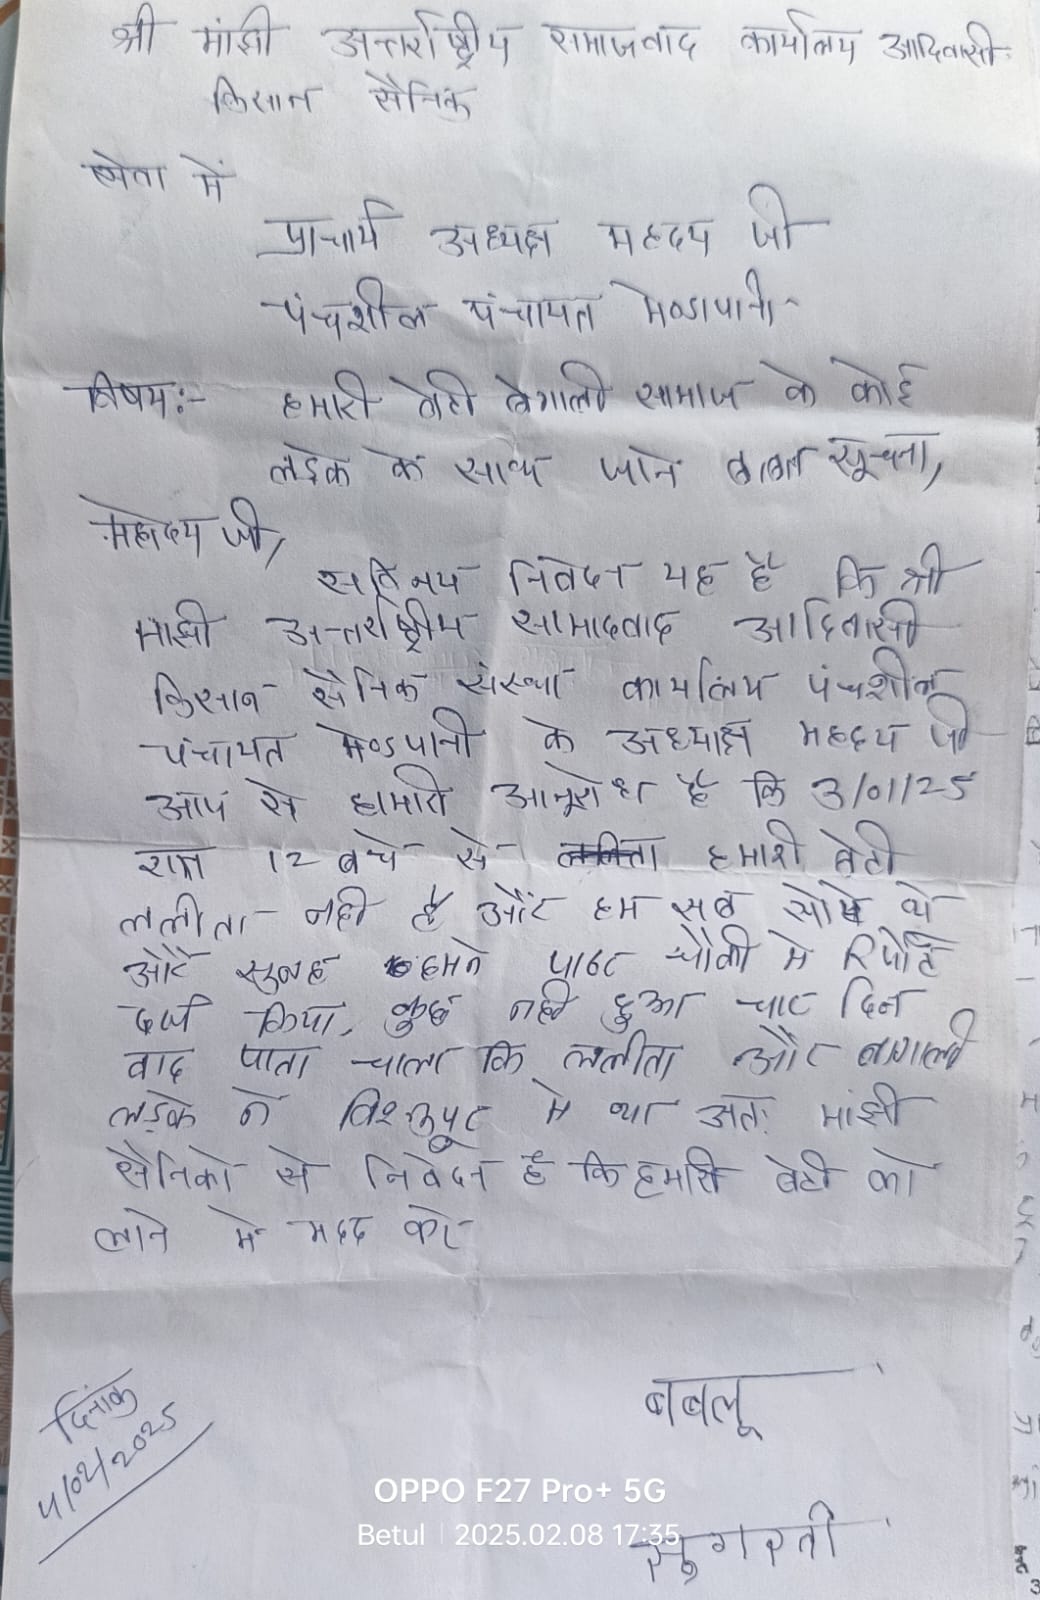 श्री मांझी अन्तर्राष्ट्रीय समाजवाद कार्यालय आदिवासी
किसान सैनिक
सेवा में
प्राचार्य अध्यक्ष महदय जी
पंचशील पंचायत मेण्डापानी
विषय:- हमारी बेटी बेगाली सामाज के कोई
लड़के के साथ जाने बाबत सूचना,
महोदय जी,
सविनय निवेदन यह है कि श्री
मांझी अन्तर्राष्ट्रीय सामादवाद आदिवासी
किसान सैनिक संस्था कार्यालय पंचशील
पंचायत मेण्डपानी के अध्याक्ष महदय जी
आप से हामारी आनूरोध है कि 3/01/25
रात्र 12 बचे से हमारी बेटी
ललीता नही है और हम सब सोये थे
और सुबह हमने पाढर चौकी मे रिपोर्ट
दर्ज किया, कुछ नही हुआ चार दिन
बाद पाता चाला कि ललीता और बागाली
लड़के ने में था अतः मांझी
सैनिको से निवेदन है कि हमारी बेटी को
लाने मे मदद करे
दिनांक
बबलू
OPPO F27 Pro+ 5G
Betul | 2025.02.08 17:35
सुगरती